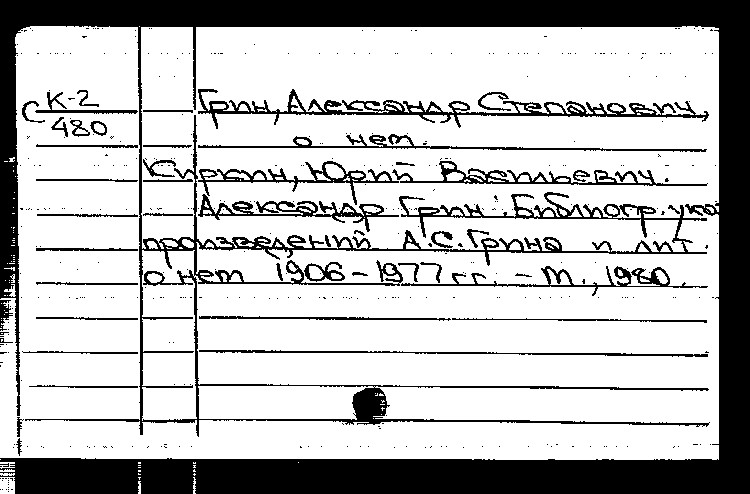 С К-2
480
Грин, Александр Степанович,
о нет.
Киркин, Юрий Васильевич.
Александр Грин: Библиогр. указ
произведений А.С. Грина и лит.
о нет 1906-1977 гг. - М., 1980.